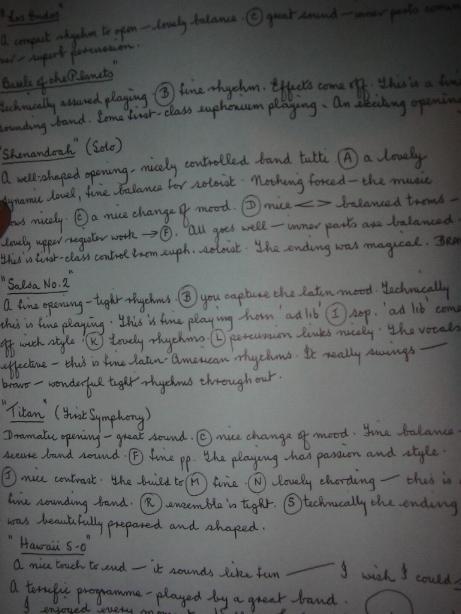 "Los Dados"
A compact rhythm to open – lovely balance. (C) great sound – inner parts
– superb percussion.
Battle of the Planets"
Technically assured playing. (B) fine rhythm. Effects come off. This is a fine
sounding band. Some first-class euphonium playing. An exciting opening
"Shenandoah" (Solo)
A well-shaped opening – nicely controlled band tutti (A) a lovely
dynamic level, fine balance for soloist. Nothing forced – the music
nicely. (C) a nice change of mood. (D) nice <> balanced troms –
lovely upper register work → (F). All goes well – inner parts are balanced –
This is first-class control from euph. soloist. The ending was magical.
"Salsa No. 2"
A fine opening – tight rhythms. (B) you capture the latin mood. Technically
this is fine playing. This is fine playing horn 'ad lib' (I) sop. 'ad lib' come
off with style. (K) lovely rhythms. (L) percussion links nicely. The vocals
effective – this is fine latin-American rhythms. It really swings –
bravo – wonderful tight rhythms throughout.
"Titan" (First Symphony)
Dramatic opening – great sound. (C) nice change of mood. Fine balance –
secure band sound. (F) fine pp. The playing has passion and style.
(J) nice contrast. The build to (M) fine. (N) lovely chording – this is
fine sounding band. (R) ensemble is tight. (S) technically the ending
was beautifully prepared and shaped.
"Hawaii 5-0"
A nice touch to end – it sounds like fun – I wish I could
A terrific programme – played by a great band.
I enjoyed every